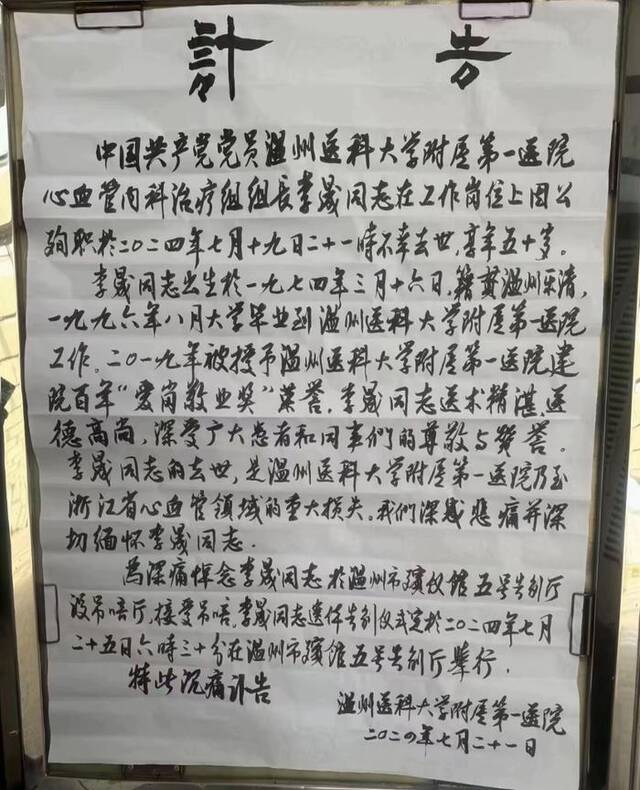 訃告
中国共产党党员温州医科大学附属第一医院
心血管内科治疗组组长李晟同志在工作岗位上因公
殉职於二〇二四年七月十九日二十一時不幸去世,享年五十岁。
李晟同志出生於一九七四年三月十六日,籍贯温州乐清,
一九九六年八月大学毕业到温州医科大学附属第一医院
工作。二〇一九年被授予温州医科大学附属第一医院建
院百年“爱岗敬业奖”荣誉。李晟同志医术精湛,医
德高尚,深受广大患者和同事们的尊敬与赞誉。
李晟同志的去世,是温州医科大学附属第一医院乃至
浙江省心血管领域的重大损失。我们深感悲痛并深
切缅怀李晟同志.
為深痛悼念李晟同志於温州市殡仪馆五号告别厅
设吊唁厅,接受吊唁,李晟同志遗体告别仪式定於二〇二四年七月
二十五日六時三十分在温州市殡馆五号告别厅举行.
特此沉痛讣告
温州医科大学附属第一医院
二〇二四年七月二十一日